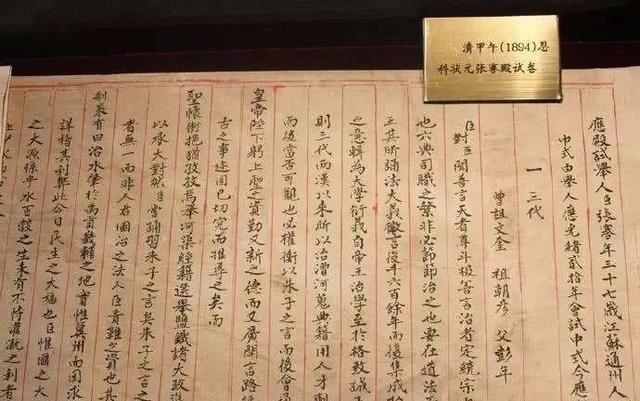 清甲午(1894)恩
科状元张謇殿试卷
應殿試舉人臣張謇年三十七歲江蘇通州人
中式由舉人應光緒貳拾年會試中式今應
一 三代
曾祖文奎 祖朝彥 父彭年
臣對臣聞善言天者尊斗極善言治者定統宗
也六典司職之繁非必節節治之也要在道法
王其所彌法大義微言後千六百餘年而後集成於
之意輯為大學衍義自帝王治學至於格致誠
則三代而漢以來所以治漕河蒐典籍用人才制
而彼當否可觀也必權衡以朱子之言而後會
皇帝陛下躬上聖之資勤又新之德而又廣開言路
古之事迹固已切究而推尋之矣而
聖懷衝挹猶孜孜焉舉河渠經籍選舉鹽鐵諸大政
以承大對然臣嘗誦習朱子之言矣朱子之言之
者無一而非人君圖治之法人臣責難之資也其
制策有曰治水肇於禹貢畿輔之地實惟冀州而因求
詳稽其利弊此今日民生之大福也臣惟國之大
之大源 水百穀之生未有不待灌溉之利者